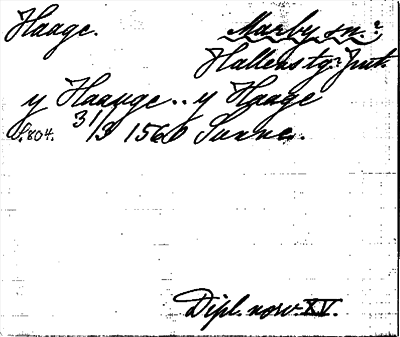 Haage. Marby sn.
Hallens tg. Jmt.
y Haauge .. y Haage
s. 804. 31/3 1560 Sunne.
Dipl. norv. XV.